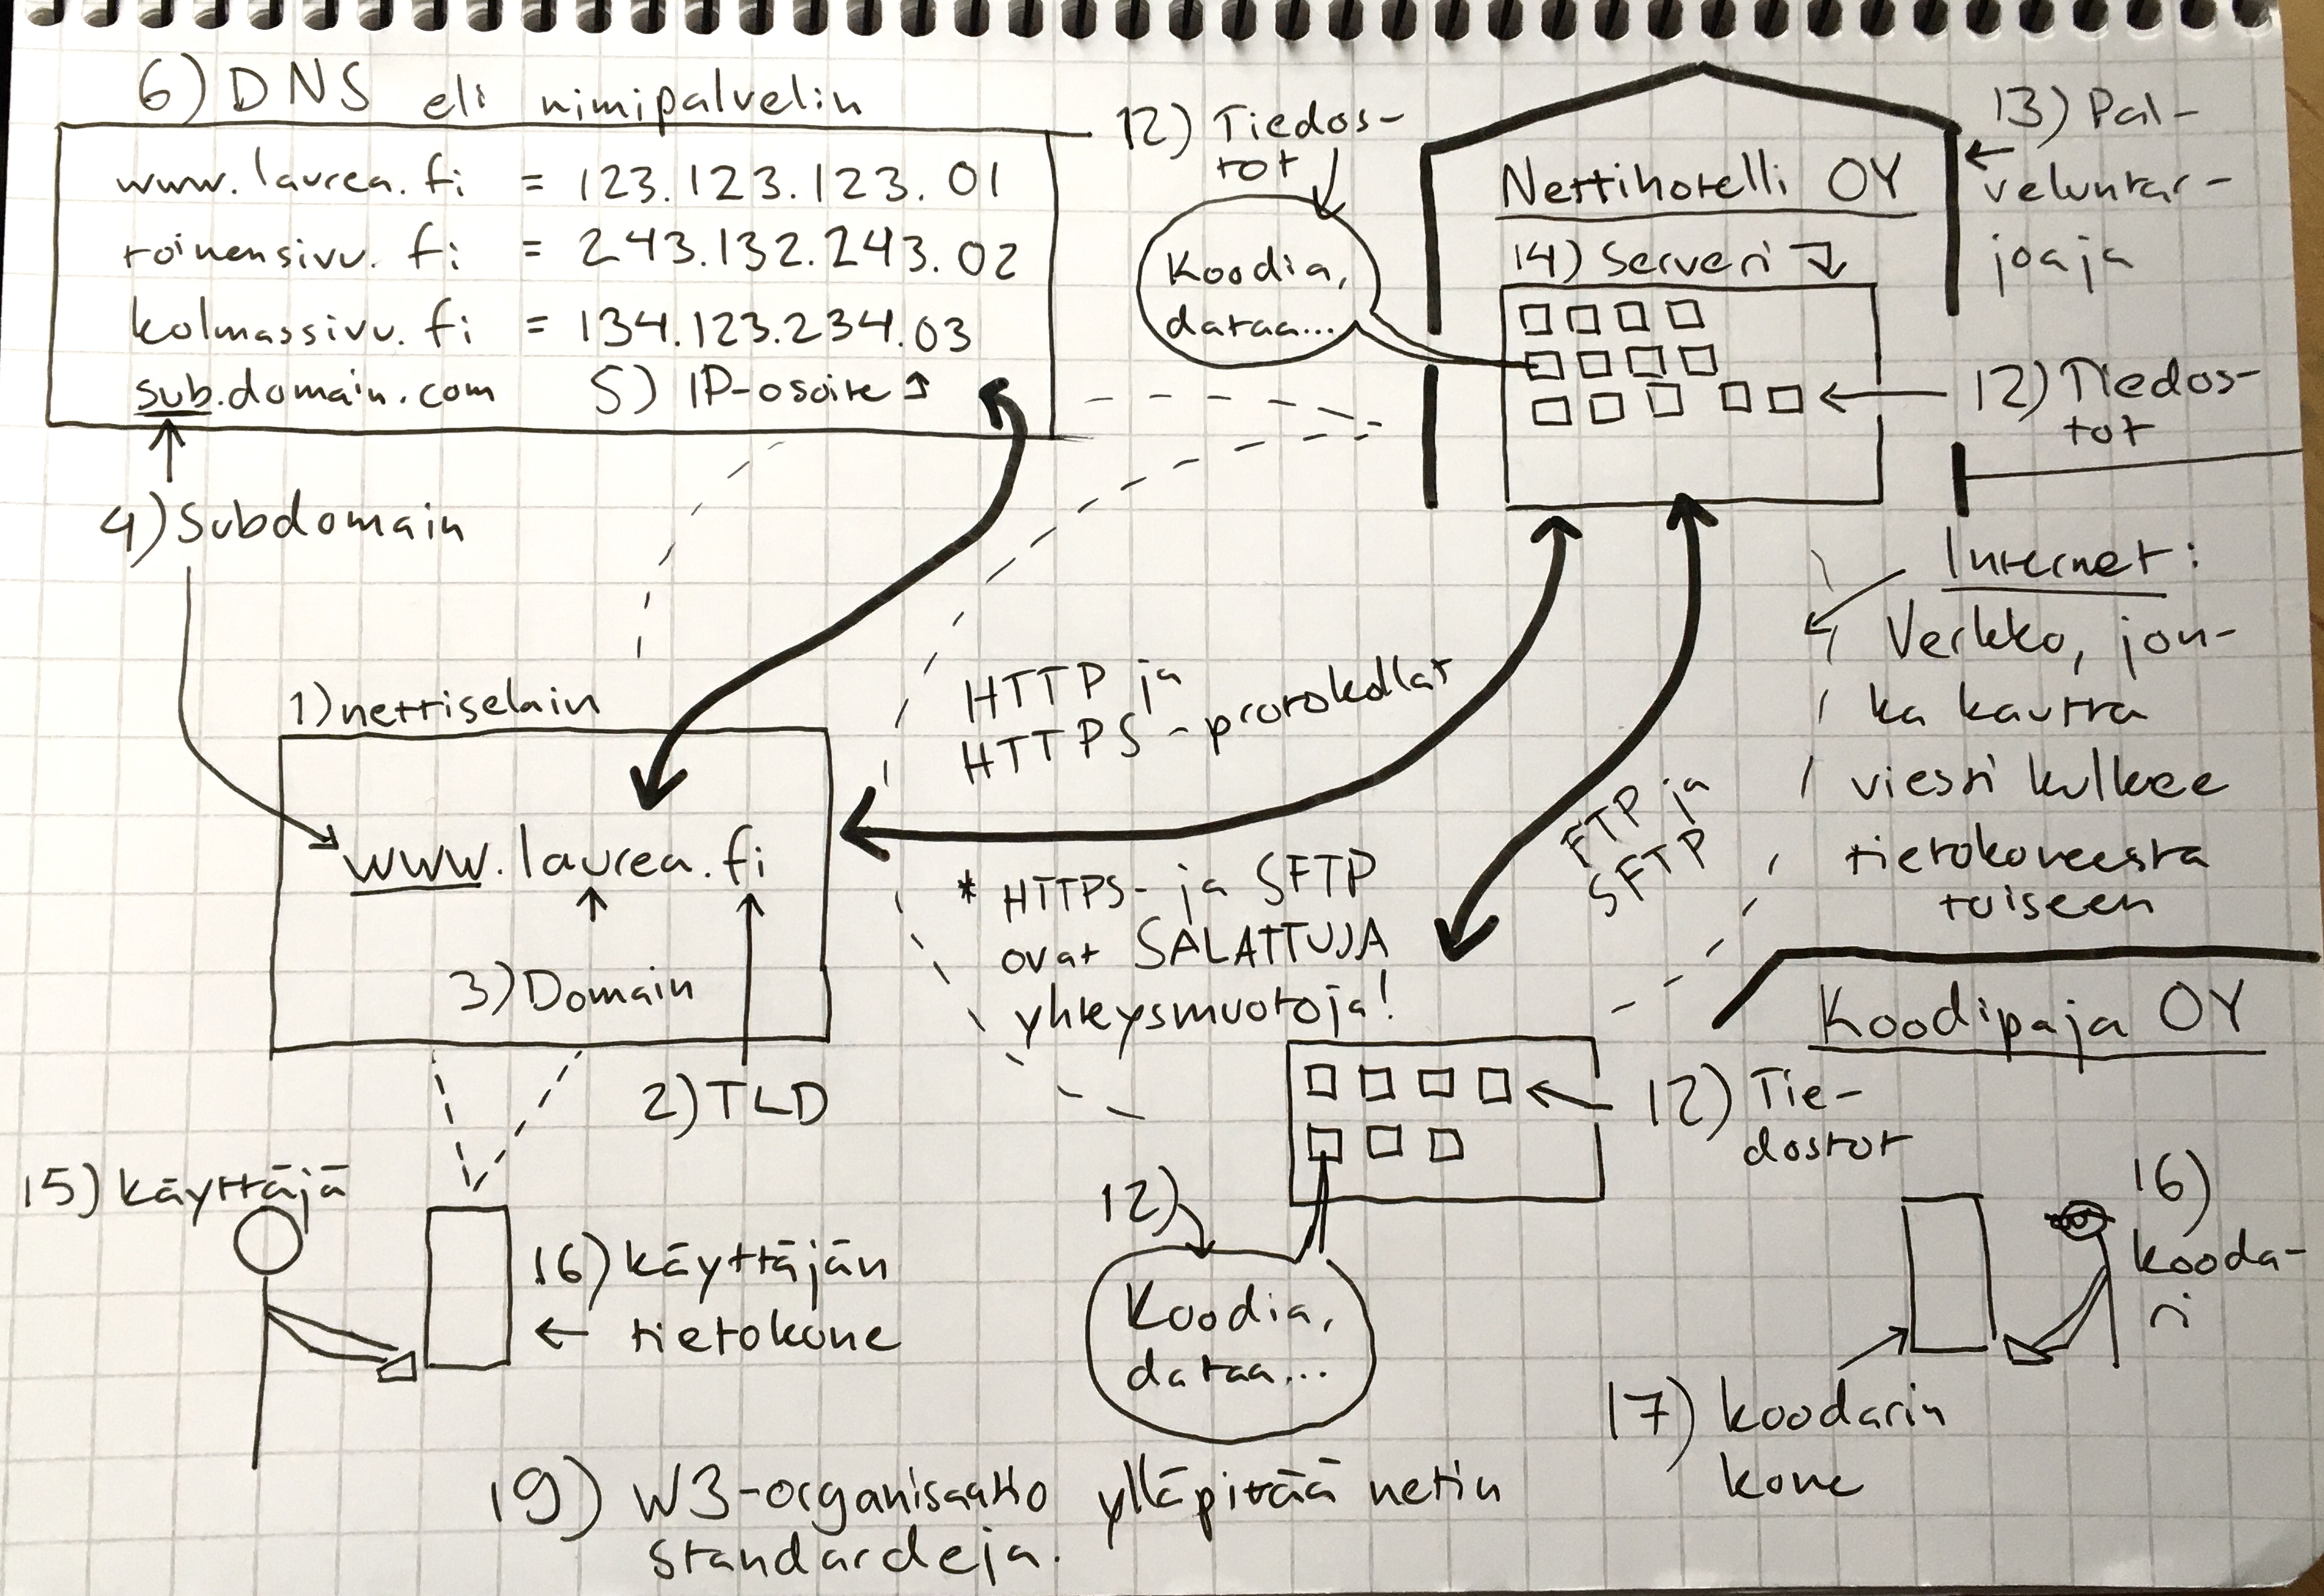 6) DNS eli nimipalvelin
www.laurea.fi = 123.123.123.01
toinensivu.fi = 243.132.243.02
kolmassivu.fi = 134.123.234.03
sub.domain.com 5) IP-osoite
4) Subdomain
12) Tiedos-
tot
Koodia,
dataa...
Nettihotelli OY
14) Serveri
13) Pal-
veluntar-
joaja
12) Tiedos-
tot
Internet:
Verkko, jon-
ka kautta
viesti kulkee
tietokoneesta
toiseen
1) nettiselain
www.laurea.fi
3) Domain
2) TLD
HTTP ja
HTTPS-protokollat
FTP ja
SFTP
* HTTPS- ja SFTP
ovat SALATTUJA
yhteysmuotoja!
Koodipaja OY
12) Tie-
dostot
12)
Koodia,
dataa...
15) käyttäjä
16) käyttäjän
tietokone
16)
kooda-
ri
17) koodarin
kone
19) W3-organisaatio ylläpitää netin
standardeja.